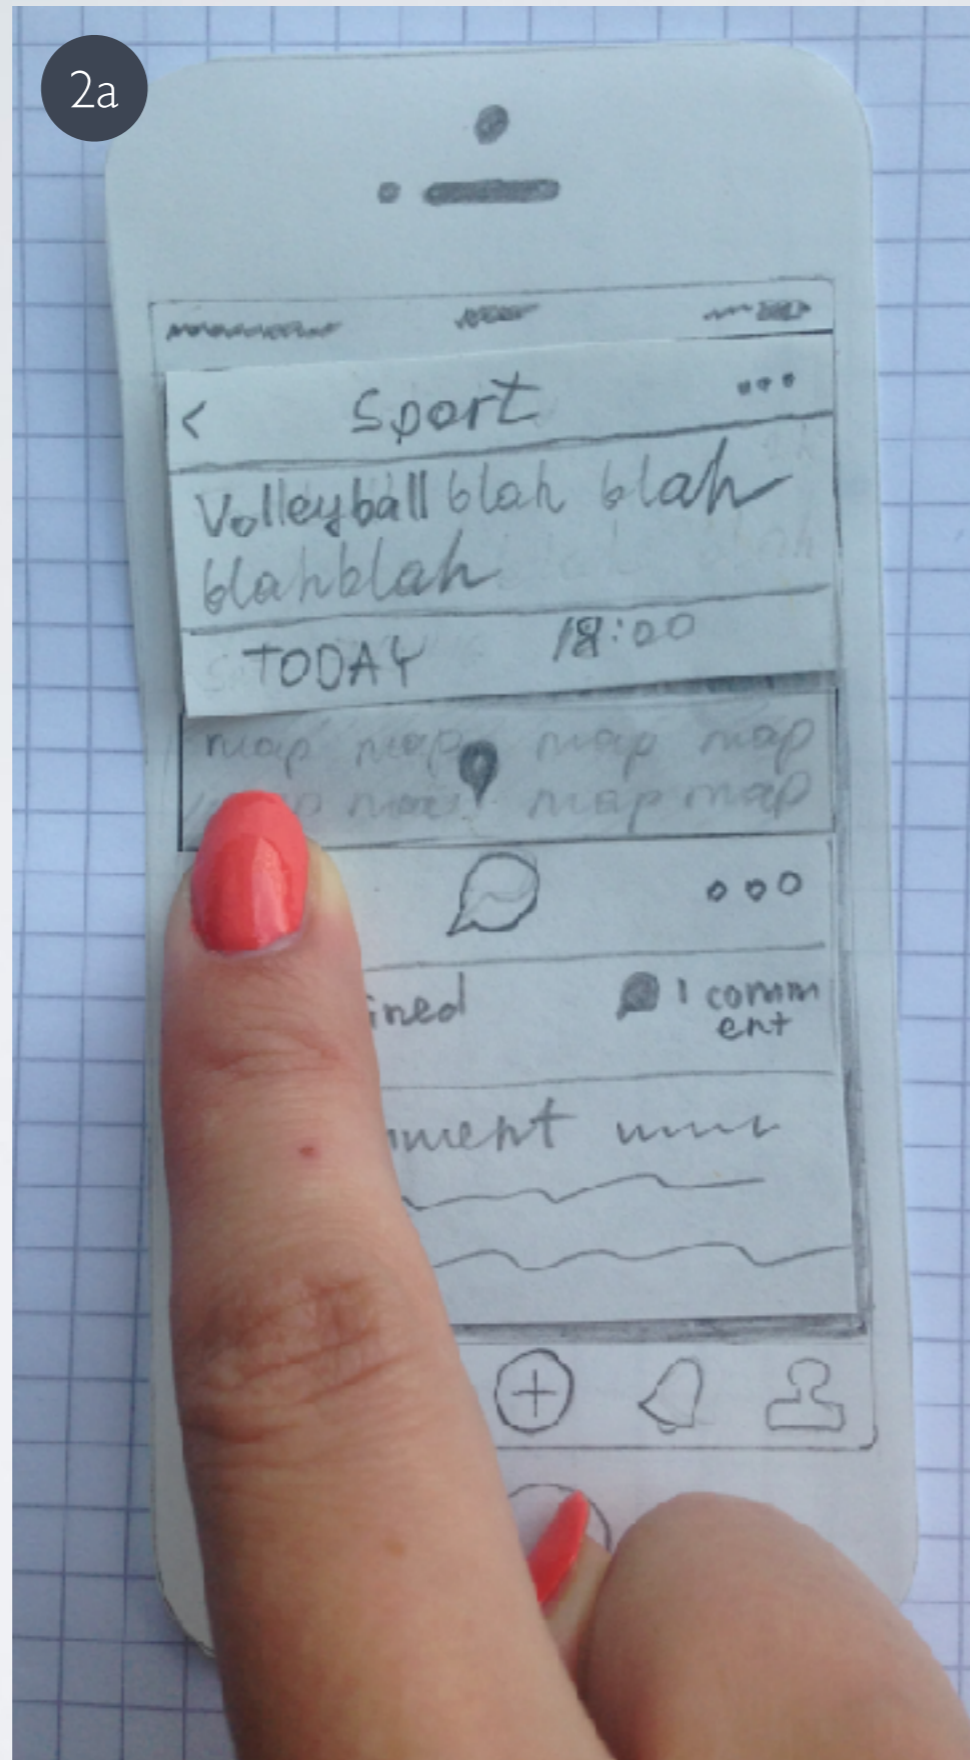 2a
< Sport
Volleyball blah blah
blahblah
TODAY 18:00
map map map map
map map map
1 comm
ent